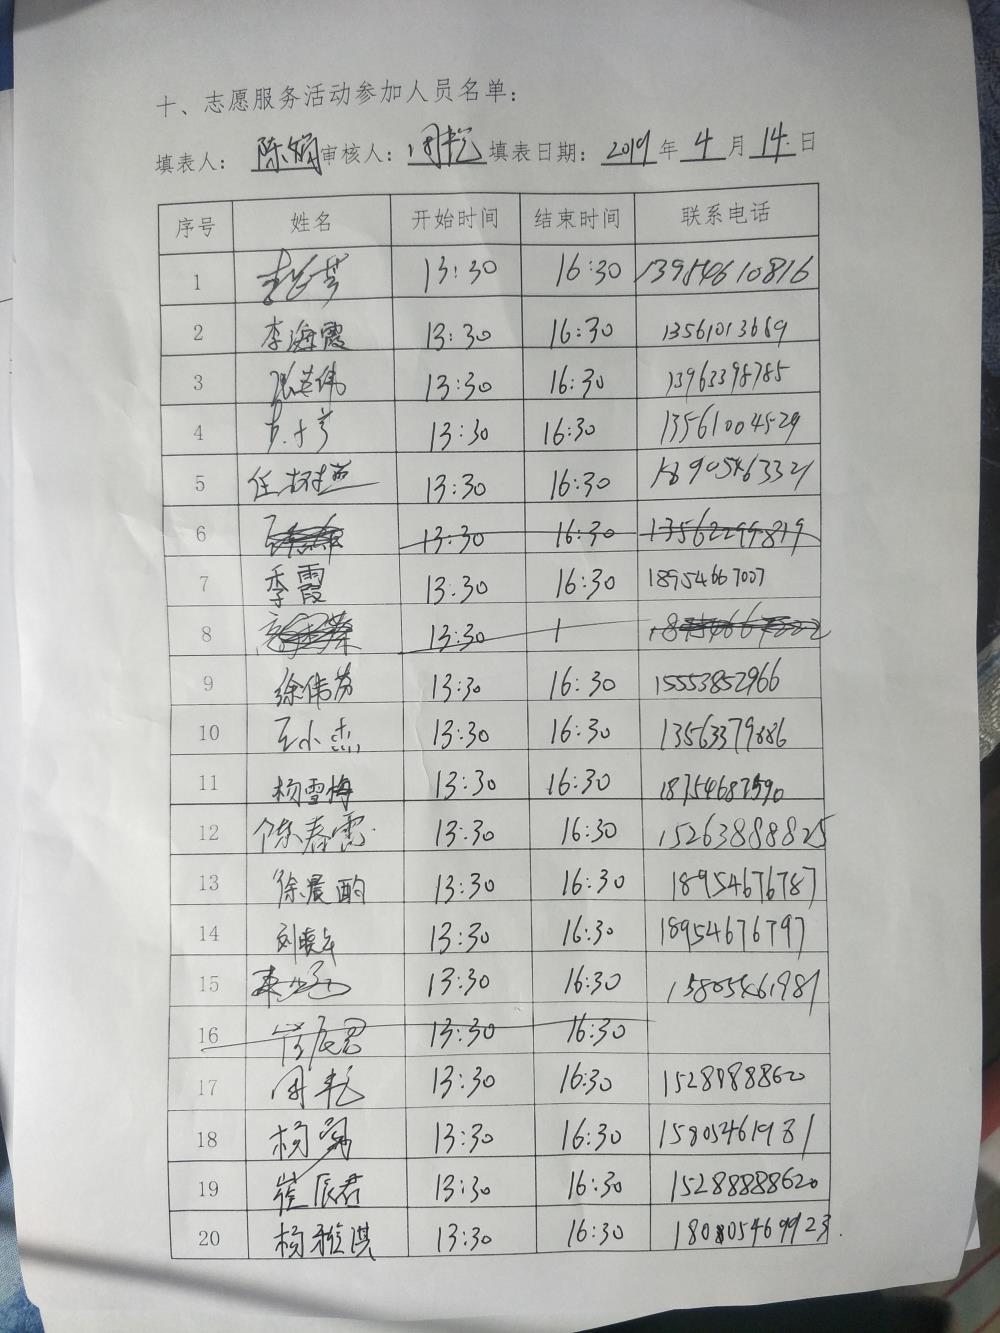 十、志愿服务活动参加人员名单：
填表人： 陈娟 审核人： 周乾 填表日期： 2019 年 4 月 14 日
序号 姓名 开始时间 结束时间 联系电话
1 13:30 16:30 13954610816
2 李海霞 13:30 16:30 13561013669
3 张英伟 13:30 16:30 13963398785
4 13:30 16:30 13561004529
5 任 13:30 16:30 18905463321
6 13:30 16:30 13562299819
7 季霞 13:30 16:30 18954667007
8 13:30
9 徐伟芳 13:30 16:30 15553852966
10 王小杰 13:30 16:30 13563379886
11 杨雪梅 13:30 16:30 18754687590
12 陈春霞 13:30 16:30 15263888825
13 徐晨酌 13:30 16:30 18954676787
14 刘 13:30 16:30 18954676797
15 13:30 16:30 15805461981
16 崔辰君 13:30 16:30
17 周乾 13:30 16:30 1528888620
18 杨 13:30 16:30 15805461981
19 崔辰君 13:30 16:30 15288888620
20 杨雅淇 13:30 16:30